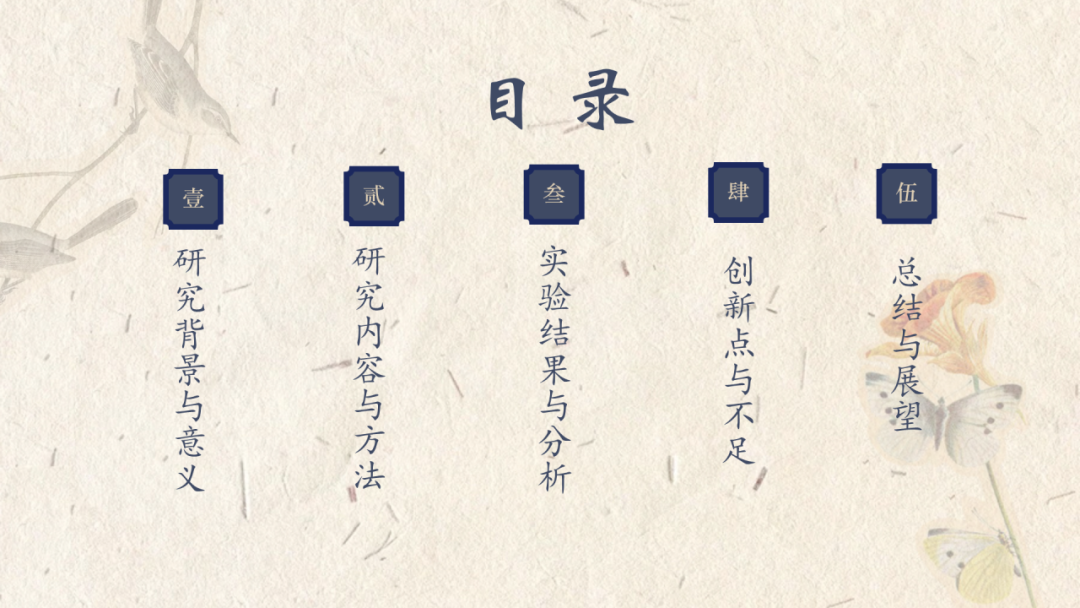 目录
壹
研究背景与意义
贰
研究内容与方法
叁
实验结果与分析
肆
创新点与不足
伍
总结与展望